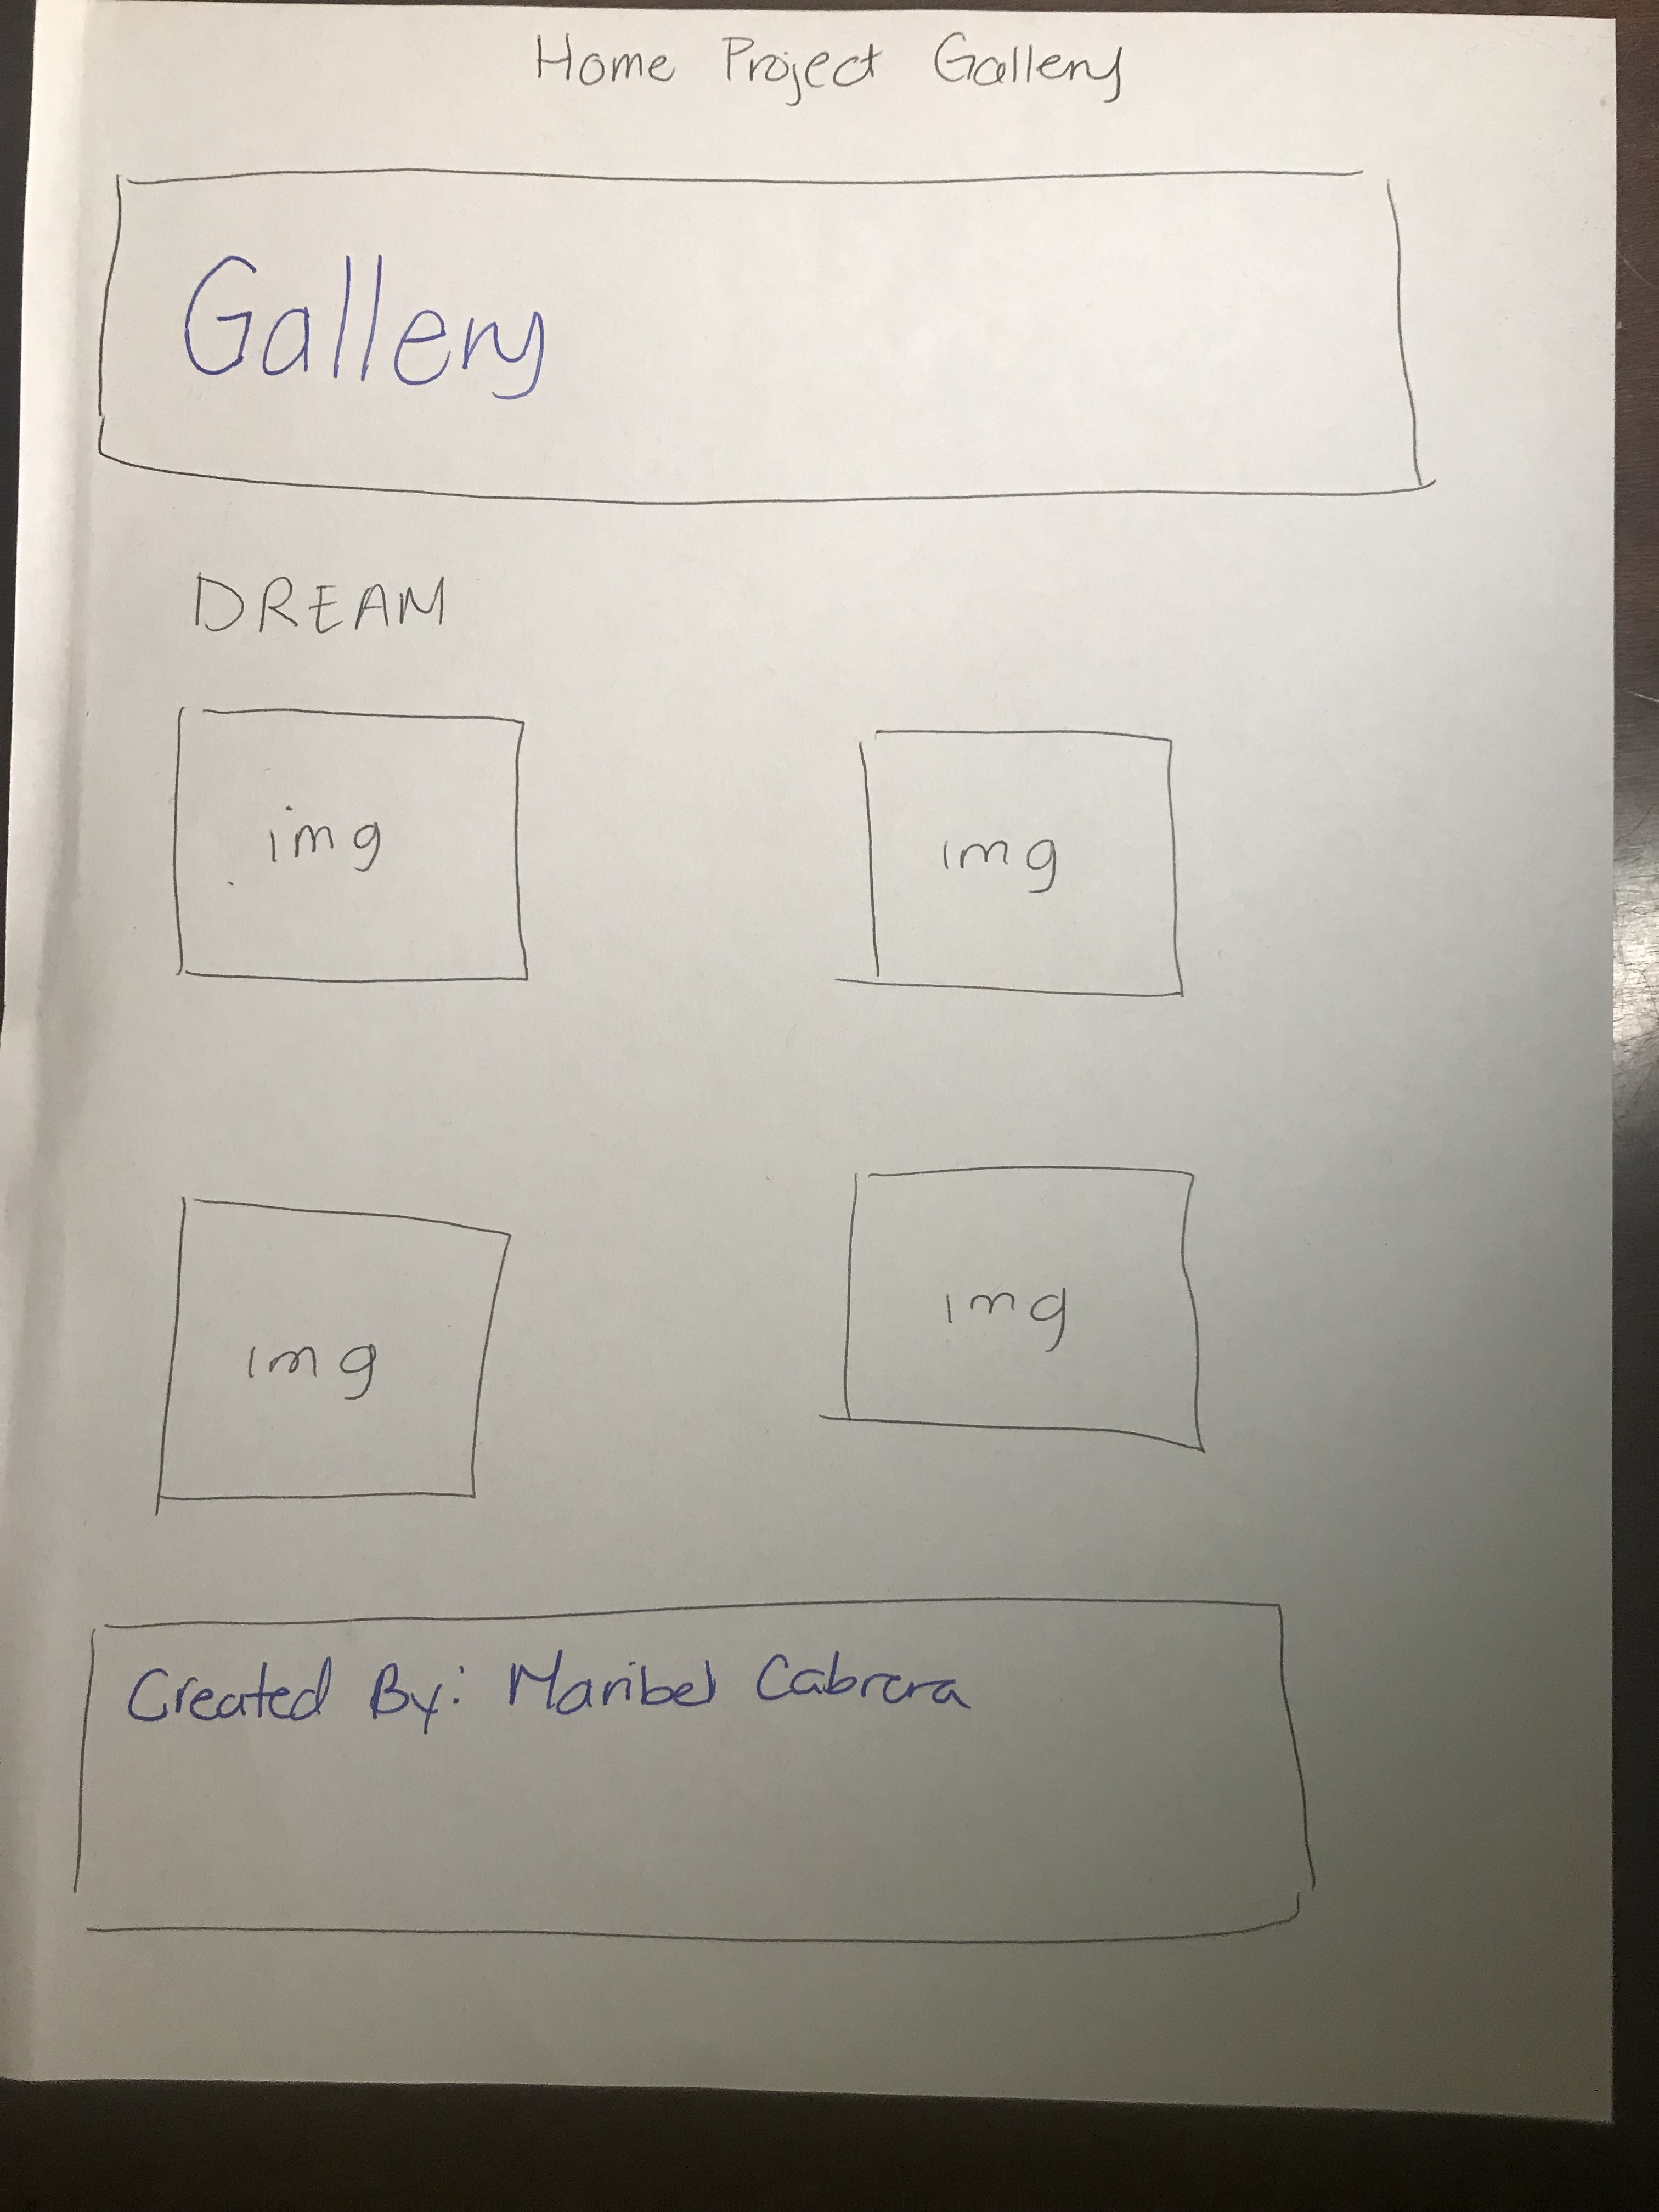 Home Project Gallery
Gallery
DREAM
img img
img img
Created By: Maribel Cabrera